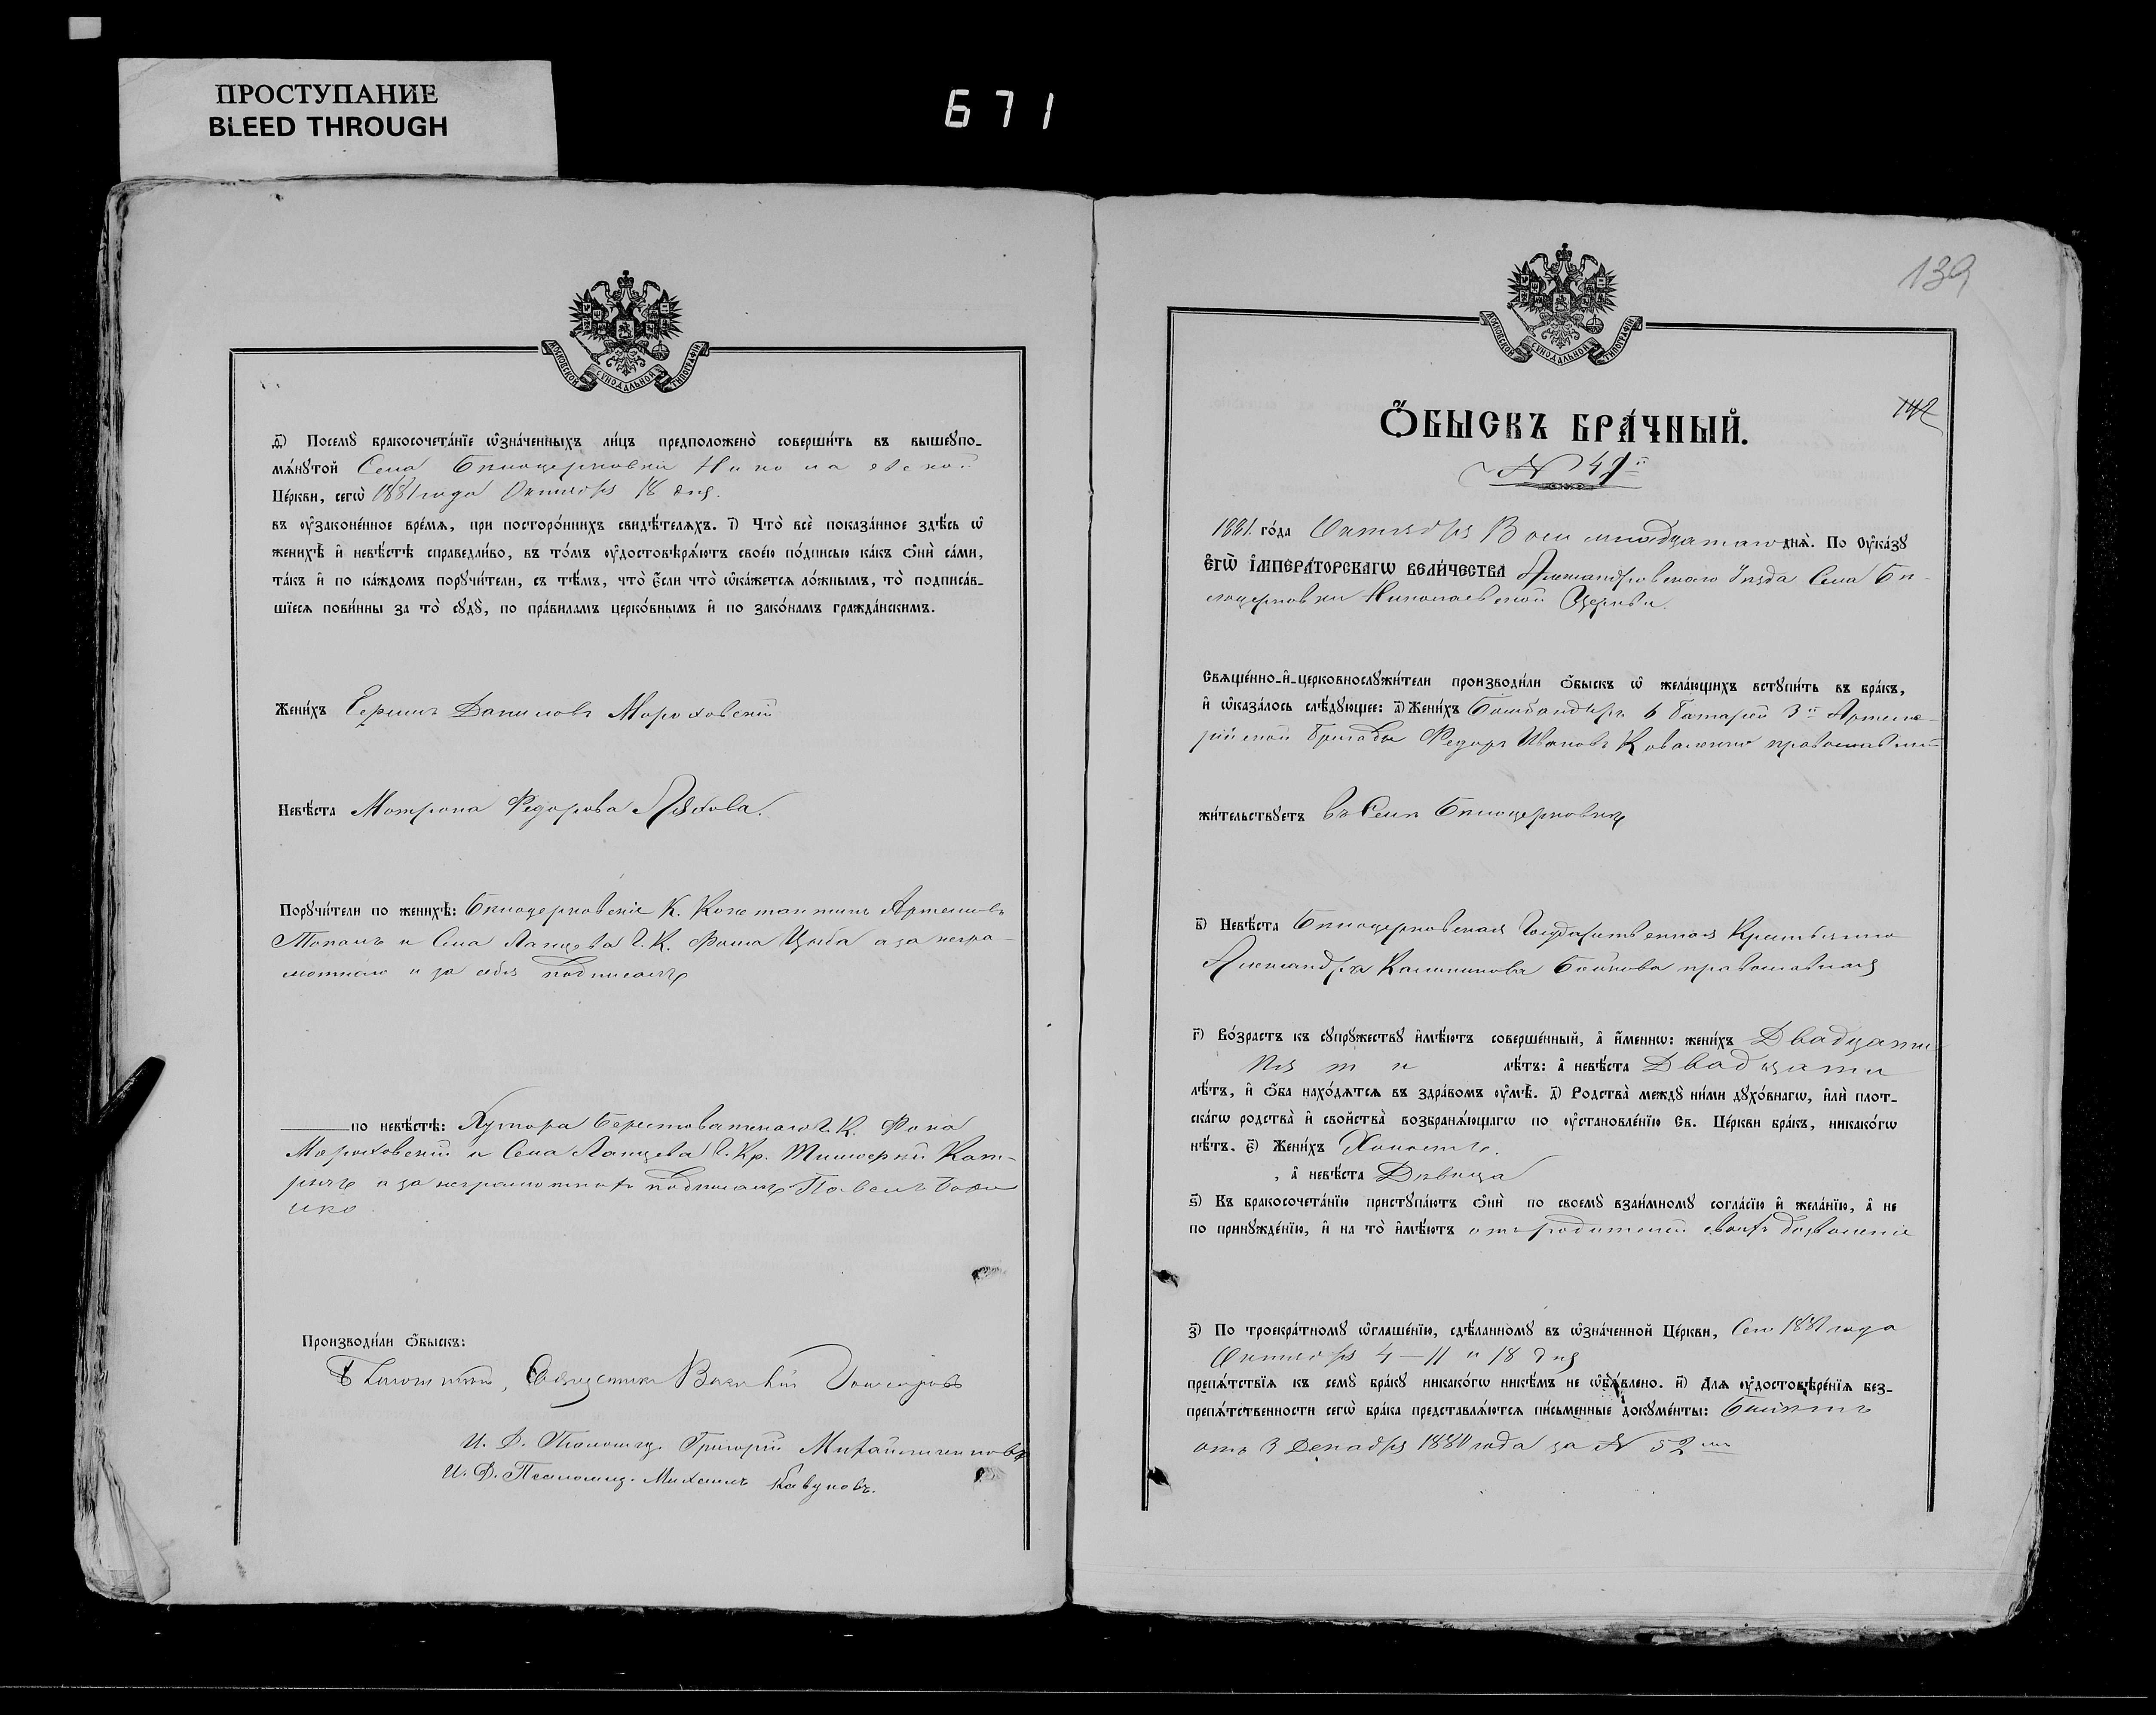 ПРОСТУПАНИЕ
BLEED THROUGH
671
МОСКОВСКОЙ СУНОДАЛЬНОЙ ТИПОГРАФІИ
Посемꙋ̀ бракосочета́нїе ѡ҆зна́ченныхъ ли́цъ предположено̀ соверши́ть въ вышеꙋпо-
мѧ́нꙋтой Села Бѣлоцерковки Николаевской
Це́ркви, сегѡ̀ 1881 года Октября 18 дня.
въ ᲂу҆законе́нное вре́мѧ, при посторо́ннихъ свидѣ́телѧхъ. і҃) Что̀ всѐ пока́занное здѣ́сь ѡ҆
женихѣ̀ и҆ невѣ́стѣ справедли́во, въ то́мъ ᲂу҆достовѣрѧ́ютъ свое́ю по́дписью ка́къ ѻ҆нѝ са́ми,
та́къ и҆ по ка́ждомъ порꙋчи́тели, съ тѣ́мъ, что̀ є҆́сли что̀ ѡ҆ка́жетсѧ ло́жнымъ, то̀ подписа́в-
шїесѧ пови́нны за то̀ сꙋдꙋ̀, по пра́виламъ церко́внымъ и҆ по зако́намъ гражда́нскимъ.
Жени́хъ Данилов Мороховскій
Невѣ́ста Мотрона Федорова
Порꙋчи́тели по женихѣ̀: Бѣлоцерковскіе К. Константинъ Артемовъ
и Села Ланцева Г. К. Фома Цыба а за негра-
мотнаго и за себя подписалъ
по невѣ́стѣ: Хутора Берестоватскаго Г. К.
Мороховскій и Села Ланцева Г. Кр. Тимоѳей
и за неграмотныхъ подписалъ Павелъ
Производи́ли ѻ҆́быскъ:
Священникъ Василій
И. Д. Псаломщ. Григорій Михайличенковъ
И. Д. Псаломщ. Михаилъ Кавуновъ.
139
МОСКОВСКОЙ СУНОДАЛЬНОЙ ТИПОГРАФІИ
142
Ѻ҆́БЫСКЪ БРА́ЧНЫЙ.
№ 42й
1881. го́да Октября Восемнадцатаго днѧ̀. По Оу҆ка́зꙋ
Є҆ГѠ̀ І҆МПЕРА́ТОРСКАГѠ ВЕЛИ́ЧЕСТВА Александровскаго Уѣзда Села Бѣ-
лоцерковки Николаевской Церкви.
Свѧще́нно-и҆-церковнослꙋжи́тели производи́ли ѻ҆́быскъ ѡ҆ жела́ющихъ встꙋпи́ть въ бра́къ,
и҆ ѡ҆каза́лось слѣ́дꙋющее: а҃) Жени́хъ Бомбандиръ 6 батареи 3й Артиле-
рійской бригады Федоръ Ивановъ Коваленко православный
жи́тельствꙋетъ въ Селѣ Бѣлоцерковкѣ
в҃) Невѣ́ста Бѣлоцерковская Государственная Крестьянка
Александра Калиникова Бойкова православная
г҃) Во́зрастъ къ сꙋпрꙋ́жествꙋ и҆мѣ́ютъ соверше́нный, а҆ и҆́меннѡ: жени́хъ Двадцати
пяти лѣ́тъ: а҆ невѣ́ста Двадцати
лѣ́тъ, и҆ ѻ҆́ба нахо́дѧтсѧ въ здра́вомъ ᲂу҆мѣ̀. д҃) Родства̀ междꙋ̀ ни́ми дꙋхо́внагѡ, и҆лѝ плот-
ска́гѡ родства̀ и҆ свойства̀ возбранѧ́ющагѡ по ᲂу҆становле́нїю Св. Це́ркви бра́къ, никако́гѡ
нѣ́тъ. є҃) Жени́хъ Холостъ.
, а҆ невѣ́ста Дѣвица
ѕ҃) Къ бракосочета́нїю пристꙋпа́ютъ ѻ҆нѝ по своемꙋ̀ взаи́мномꙋ согла́сїю и҆ жела́нїю, а҆ не
по принꙋжде́нїю, и҆ на то̀ и҆мѣ́ютъ отъ родителей своихъ дозволеніе
з҃) По троекра́тномꙋ ѡ҆глаше́нїю, сдѣ́ланномꙋ въ ѡ҆зна́ченной Це́ркви, Сего 1881 года
Октября 4 — 11 и 18 дня
препѧ́тствїѧ къ семꙋ̀ бра́кꙋ никако́гѡ никѣ́мъ не ѡ҆бѧ́влено. и҃) Длѧ ᲂу҆достовѣре́нїѧ без-
препѧ́тственности сегѡ̀ бра́ка представлѧ́ютсѧ пи́сьменные докꙋме́нты: Билетъ
отъ 3 Декабря 1880 года за № 52мъ